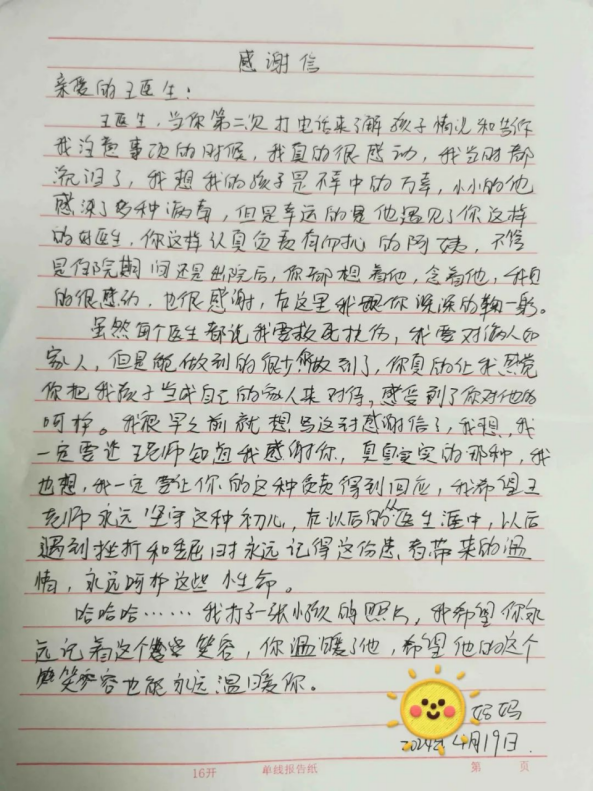 感谢信
亲爱的王医生：
王医生，当你第二次打电话来了解孩子情况和告诉
我注意事项的时候，我真的很感动，我当时都
流泪了，我想我的孩子是不幸中的万幸，小小的他
感染了多种病毒，但是幸运的是他遇见了你这样
的好医生，你这样认真负责有的阿姨，不管
是住院期间还是出院后，你都想着他，念着他，我真
的很感动，也很感谢，在这里我跟你深深的鞠一躬。
虽然每个医生都说我要救死扶伤，我要对病人如
家人，但是能做到的很少，你做到了，你真的让我感觉
你把我孩子当成自己的家人来对待，感受到了你对他的
呵护。我很早之前就想写这封感谢信了，我想，我
一定要让王老师知道我感谢你，真真实实的那种，我
也想，我一定要让你的这种负责得到回应，我希望王
老师永远坚守这种初心，在以后的医生涯中，以后
遇到挫折和委屈时永远记得这份患者带来的温
情，永远呵护这些小生命。
哈哈哈……我打了一张小孩的照片，我希望你永
远记着这个笑容，你温暖了他，希望他的这个
微笑容也能永远温暖你。
妈妈
2024年4月19日.
16开 单线报告纸 第 页